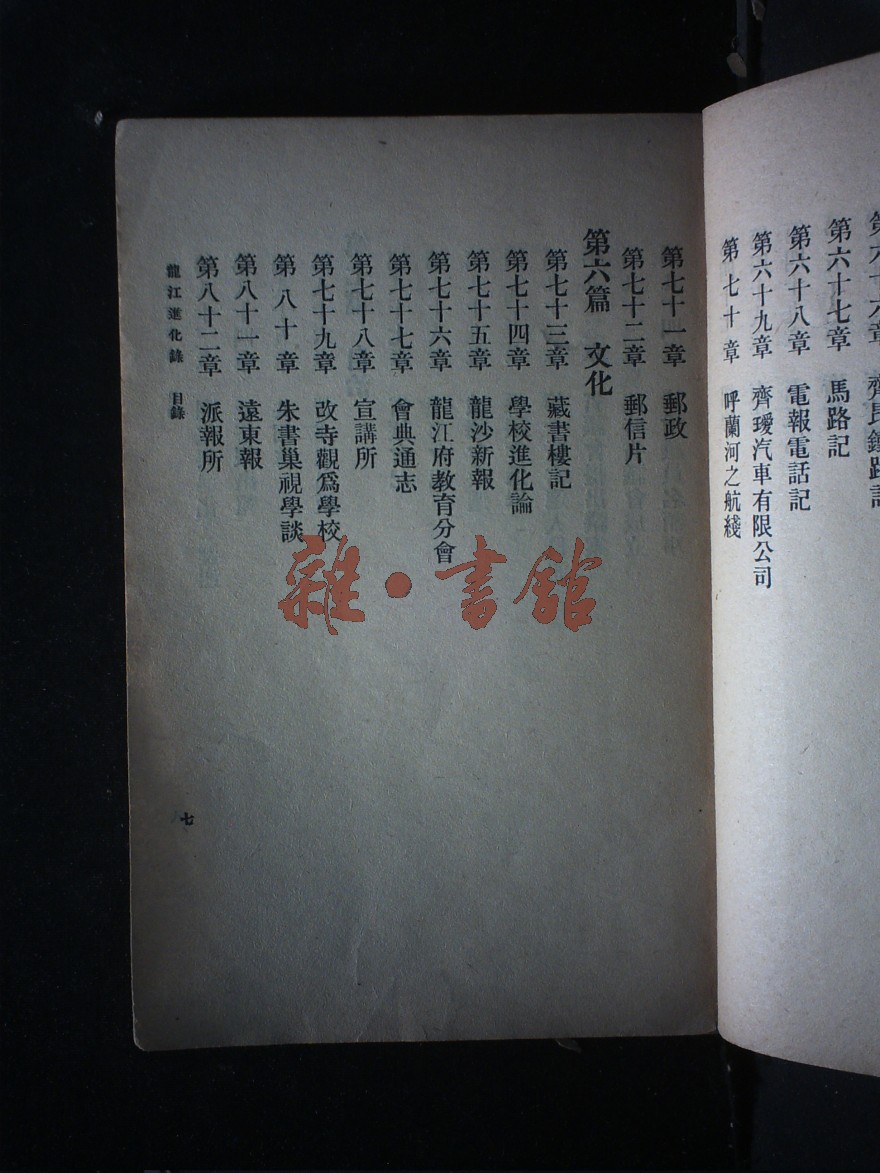 第六十七章　馬路記
第六十八章　電報電話記
第六十九章　齊璦汽車有限公司
第七十章　呼蘭河之航綫
第七十一章　郵政
第七十二章　郵信片
第六篇　文化
第七十三章　藏書樓記
第七十四章　學校進化論
第七十五章　龍沙新報
第七十六章　龍江府教育分會
第七十七章　會典通志
第七十八章　宣講所
第七十九章　改寺觀爲學校
第八十章　朱書巢視學談
第八十一章　遠東報
第八十二章　派報所
龍江進化錄　目錄
七
雜·書館